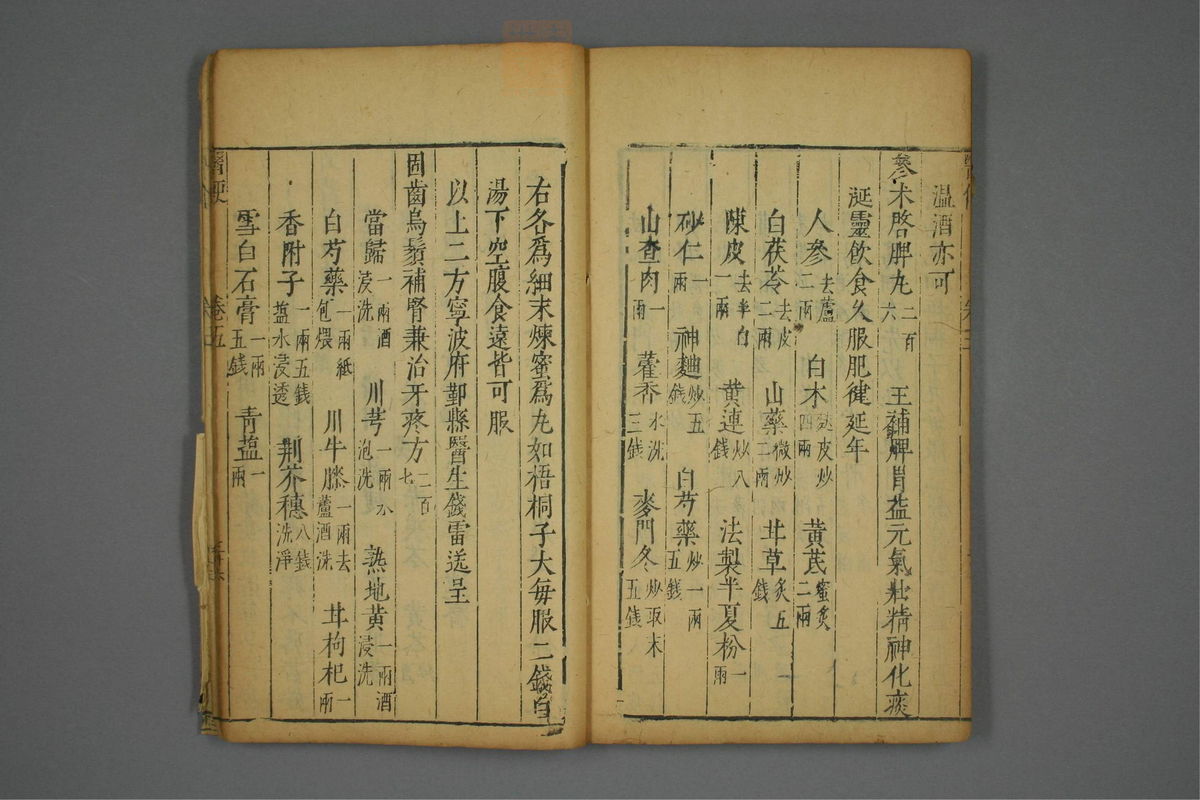 溫酒亦可
參术啓脾丸二百六 主補脾胃益元氣壯精神化痰
涎靈飲食久服肥健延年
人參去蘆二兩 白术麩皮炒四兩 黃芪蜜炙二兩
白茯苓去皮二兩 山藥微炒二兩 甘草炙五錢
陳皮去半白一兩 黃連炒八錢 法製半夏粉一兩
砂仁一兩 神麯炒五錢 白芍藥炒一兩五錢
山查肉一兩 藿香水洗三錢 麥門冬炒取末五錢
右各爲細末煉蜜爲丸如梧桐子大每服二錢白
湯下空腹食遠皆可服
以上二方寧波府鄞縣醫生錢雷送呈
固齒烏鬚補腎兼治牙疼方二百七
當歸一兩酒浸洗 川芎一兩水泡洗 熟地黃一兩酒浸洗
白芍藥一兩紙包煨 川牛膝一兩去蘆酒洗 甘枸杞一兩
香附子一兩五錢鹽水浸透 荆芥穗八錢洗淨
雪白石膏一兩五錢 青鹽一兩
醫便 卷五